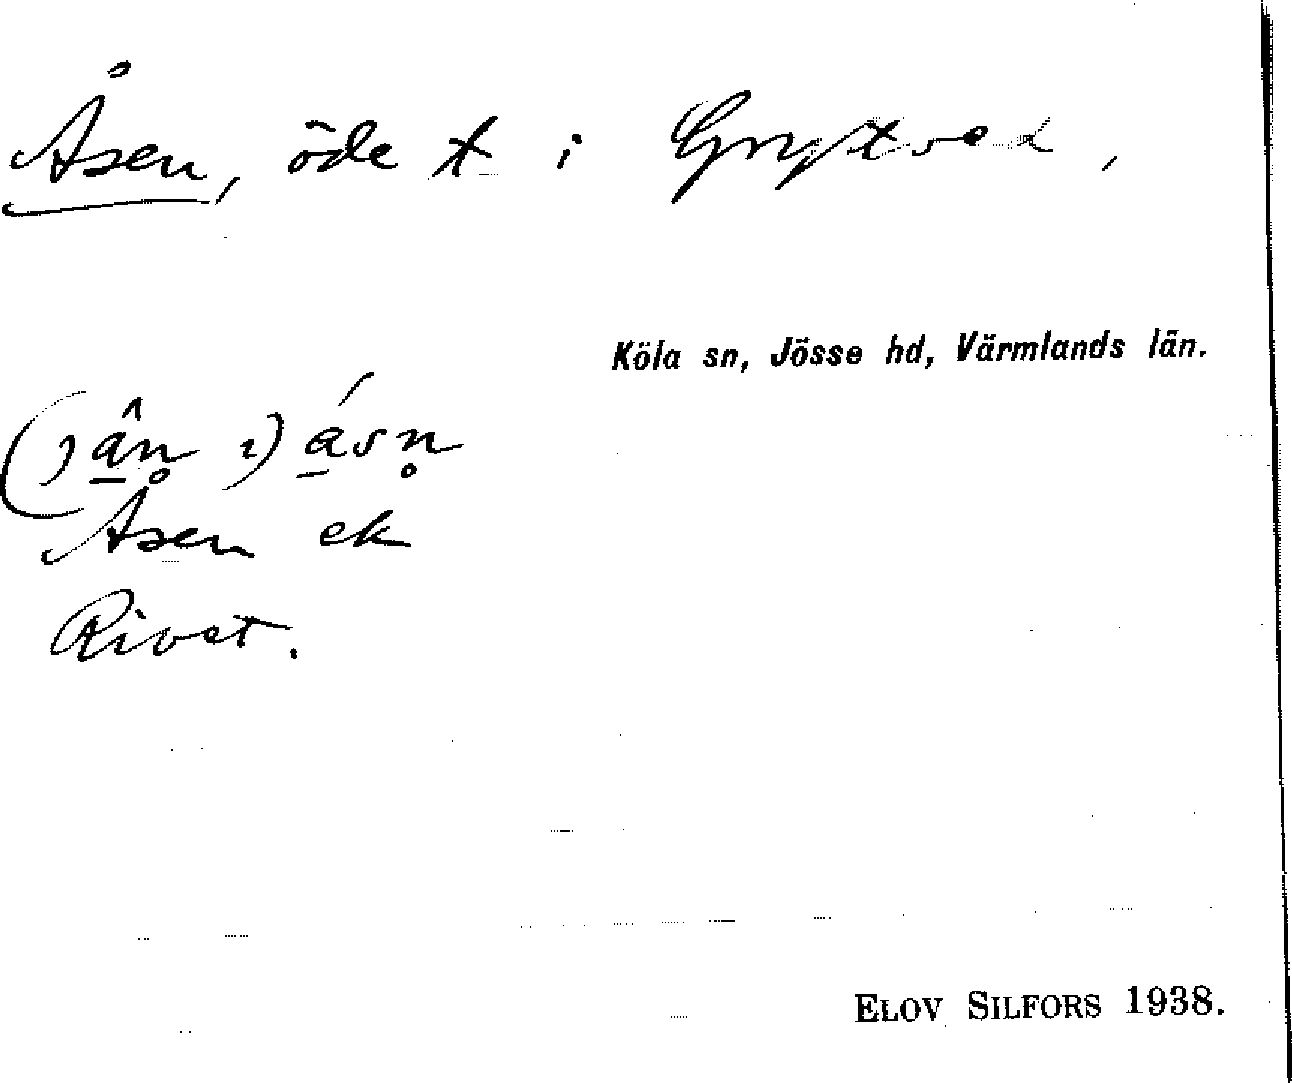 Åsen, öde t i Gryttved,
Köla sn, Jösse hd, Värmlands län.
(1) ân 2) ásn̥
Åsen ek
Rivet.
ELOV SILFORS 1938.